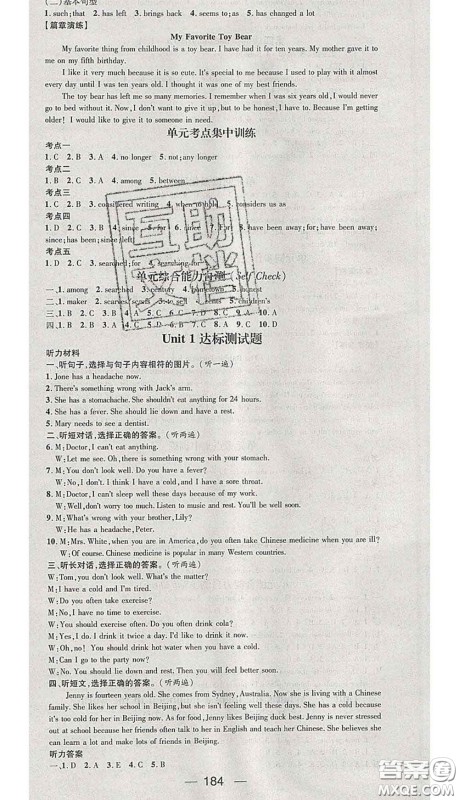 (二)基本句型
1. such; that  2. has  3. brings back  4. seems to; as  5. has changed
【篇章演练】
My Favorite Toy Bear
My favorite thing from childhood is a toy bear. I have had it for ten years. My mother gave it to
me on my fifth birthday.
I like it very much because it is so cute. It's special to me because I used to play with it almost
every day until I was ten years old. I thought it was one of my best friends.
The toy bear has left me so many memories. I remember when I was six years old, I would never
go to bed without it. Now, I don't want to give it up, but to be honest, I have to. Because I'm getting
older! I would like to give it to someone in need.
单元考点集中训练
考点一
1. C  2. B  3. A  4. no longer  5. not; any longer
考点二
1. D  2. A  3. A  4. between
考点三
1. D  2. B  3. considered writing  4. when to hold  5. considers us as
考点四
1. D  2. D  3. B  4. C  5. has been away from; for  6. have been away; for; have been away;
since; has been away; since
考点五
1. D  2. C  3. searched; for  4. searching for
单元综合能力自测(Self Check)
一、1. among  2. searched  3. century  4. hometown  5. shame
二、1. maker  2. scarves  3. silent  4. tents  5. children's
三、1. C  2. B  3. B  4. A  5. B  6. C  7. C  8. B  9. D  10. A
四、1. D  2. C  3. B  4. A  5. D  6. B  7. A  8. D  9. C  10. A
Unit 1 达标测试题
听力材料
一、听句子,选择与句子内容相符的图片。(听一遍)
1. Jone has a headache now.
2. There's something wrong with Jack's arm.
3. She has a stomachache. She shouldn't eat anything for 24 hours.
4. She has a fever. She should lie down and have a rest.
5. Mary needs to see a dentist.
二、听短对话,选择正确的答案。(听两遍)
6. M: Doctor, I can't eat anything.
W: Let me see. Oh, there's something wrong with your teeth.
7. M: You don't look well. Do you have a fever?
W: No, I don't. I think I have a cold, and I have a sore throat.
8. M: Doctor, I can't sleep well these days because of my work.
W: Well, don't worry too much. Listen to music and have a good rest.
9. M: What's wrong with your brother, Lily?
W: He has a headache, Peter.
10. M: Mrs. White, when you are in America, do you often take Chinese medicine when you are ill?
W: Of course. Chinese medicine is popular in many Western countries.
三、听长对话,选择正确的答案。(听两遍)
W: Tom, you don't look well. What's the matter?
M: I have a cold and I'm tired.
W: Do you often take exercise?
M: No, I have no time to exercise.
W: You should exercise often. Do you often drink cold water?
M: Yes, I do.
W: Oh, no! You should drink hot water when you have a cold.
M: Can I go to the party now?
W: No. You should lie down and rest. Then you will feel better soon.
四、听短文,选择正确的答案。(听两遍)
Jenny is fourteen years old. She comes from Sydney, Australia. Now she is living with a Chinese
family. She likes her school in Beijing, but she isn't feeling well these days. She has a cold because
it's too cold for her in Beijing now. As for food, Jenny likes Beijing duck best. Jenny is never stressed
out at school because her friends often talk to her in English and teach her Chinese. She believes she
can learn a lot and make lots of friends in Beijing.
听力答案
一、1. D  2. C  3. B  4. A
— 184 —
互助文档
答案圈
MXQE.COM